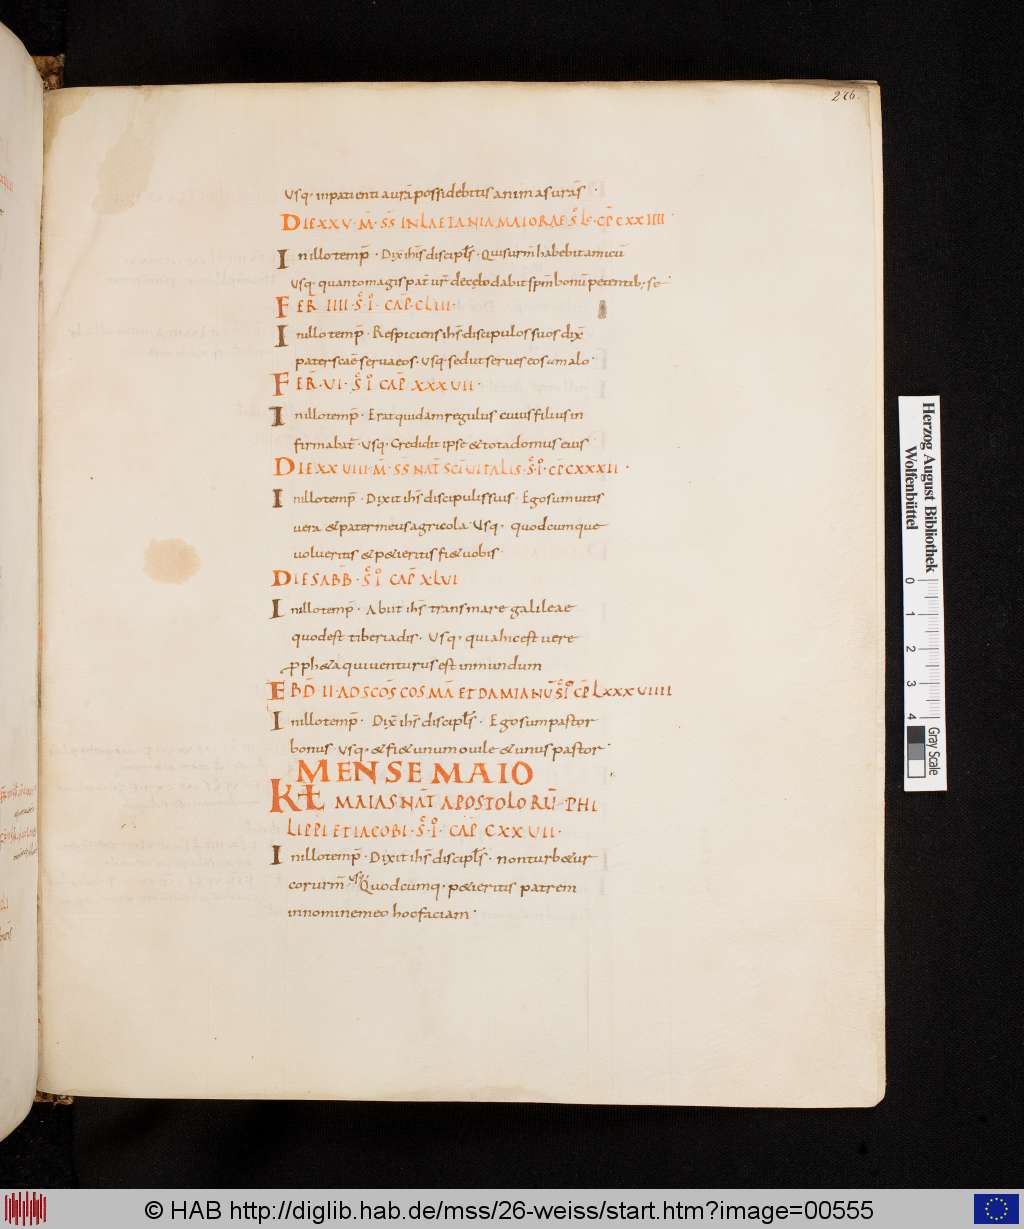 276.
usq· inpatientia ur̄a possidebitis animas urās ·
DIE XXV· M̄· SS̄ IN LAETANIA MAIORAE S̄ Lc· CP̄ CXXIIII ·
In illo temp̄ · Dix̄ ih̄s discipl̄s · Quis ur̄m habebit amicū
usq· quanto magis pat̄ ur̄ de celo dabit sp̄m bonū petentib; se
FER̄ IIII · S̄ IO · CAP̄· CLIII ·
In illo temp̄ · Respiciens ih̄s discipulos suos dix̄
pater scāe serva eos · usq· sed ut serves eos a malo ·
FER̄· VI · S̄ IO CAP̄ XXXVII ·
In illo temp̄ · Erat quidam regulus cuius filius in
firmabat̄ · usq· Credidit ipse & tota domus eius
DIE XXVIII · M̄· SS̄ NAT̄ SCĪ VITALIS · S̄ IO · CP̄ CXXXII ·
In illo temp̄ · Dixit ih̄s discipulis suis · Ego sum vitis
vera & pater meus agricola usq· quodcumque
volueritis & p&ieritis fi& vobis
DIE SABB̄ · S̄ IO CAP̄ XLVI
In illo temp̄ · Abiit ih̄s trans mare galileae
quod est tiberiadis · usq· quia hic est vere
proph&a qui venturus est in mundum
EBD̄ II · AD SCŌS COSMĀ ET DAMIANŪ S̄ IO CP̄ LXXXVIIII
In illo temp̄ · Dix̄ ih̄s discipl̄s · Ego sum pastor
bonus usq· & fi& unum ovile & unus pastor ·
MENSE MAIO
KL̄ MAIAS NAT̄ APOSTOLORŪ PHI
LIPPI ET IACOBI · S̄ · IO · CAP̄ CXXVII ·
In illo temp̄ · Dixit ih̄s discipl̄s · non turb&ur
cor ur̄m · usq· Quodcumq· p&ieritis patrem
in nomine meo hoc faciam ·
Herzog August Bibliothek
Wolfenbüttel
0 1 2 3 4
Gray Scale
© HAB http://diglib.hab.de/mss/26-weiss/start.htm?image=00555